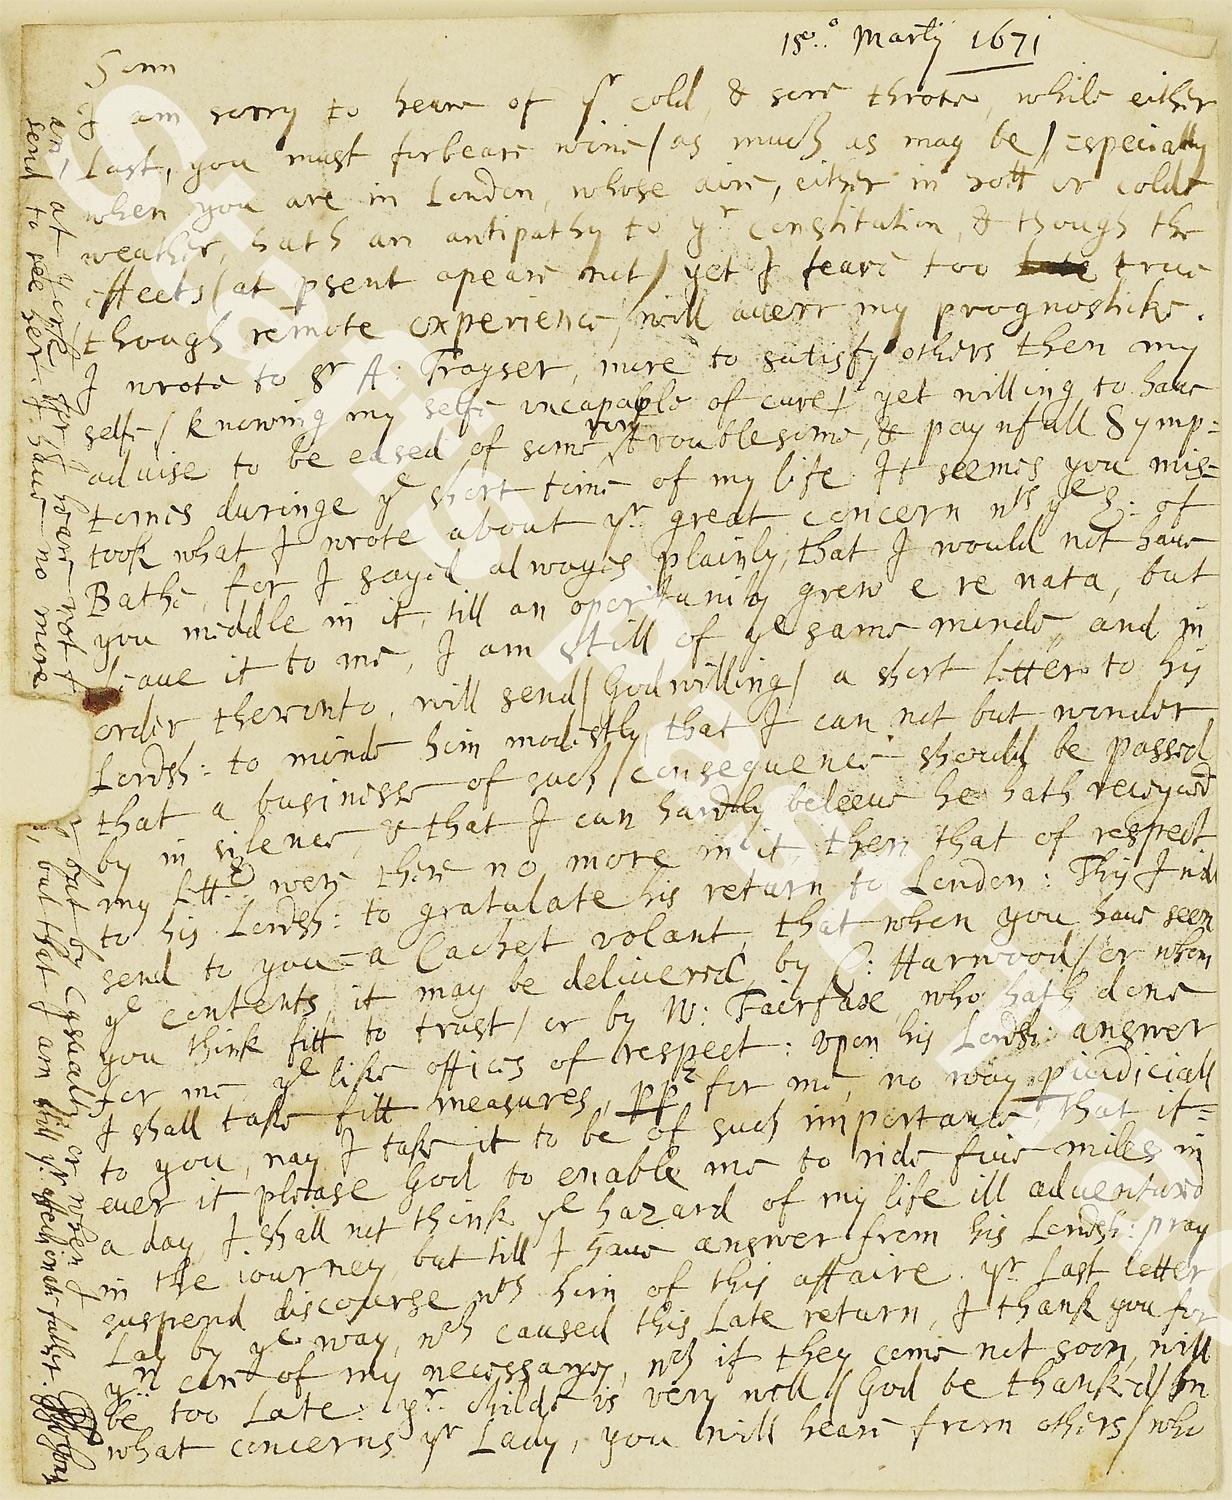 15º Martij 1671
Sonn
I am sorry to heare of yr cold, & sore throte, while either
Last, you must forbeare wine / as much as may be / Especially
when you are in London, whose aire, either in hott or colde
weather, hath an antipathy to yr Constitution, & though the
effects / at psent apeare not / yet I feare too true
though remote experience, will averr my prognosticks.
I wrote to Sr A: Frayser, more to satisfy others then my
selfe / knowing my selfe uncapable of cure / yet willing to have
advise to be eased of some very troublesome, & paynfull Symp=
tomes duringe ye short time of my life. It seemes you mis=
took what I wrote about yr great concern wth ye E: of
Bathe, for I sayed alwayes plainly, that I would not have
you meddle in it, till an oportunity grew e re nata, but
leave it to me, I am still of ye same minde, and in
order therunto, will send / God willing / a short letter to his
Lordsh: to minde him modestly, that I can not but wonder
that a businesse of such consequence should be passed
by in silence, & that I can hardly beleeve he hath receyved
my lettr were there no more in it, then that of respect
to his Lordsh: to gratulate his return to London: This I
send to you a Cachet volant, that when you have seen
ye contents, it may be delivered by C: Harwood / or whom
you think fitt to trust / or by W: Fairfax who hath done
for me ye like offices of respect: upon his Lordsh: answer
I shall take fitt measures, for me, no way piudiciall
to you, nay I take it to be of such importance, that if=
ever it please God to enable me to ride five miles in
a day, I shall not think ye hazard of my life ill adventured
in the iourney, but till I have answer from his Lordsh: pray
suspend discourse wth him of this affaire. yr Last letter
Lay by ye way, wch caused this Late return, I thank you for
yr care of my necessarys, wch if they come not soon, will
be too Late: yr childe is very well / God be thanked / In
what concerns yr Lady, you will heare from others / who
are at yorke, for I heare not
but by casually, or when I
send to see her: I have no more
but that I am still yr affectionate father.